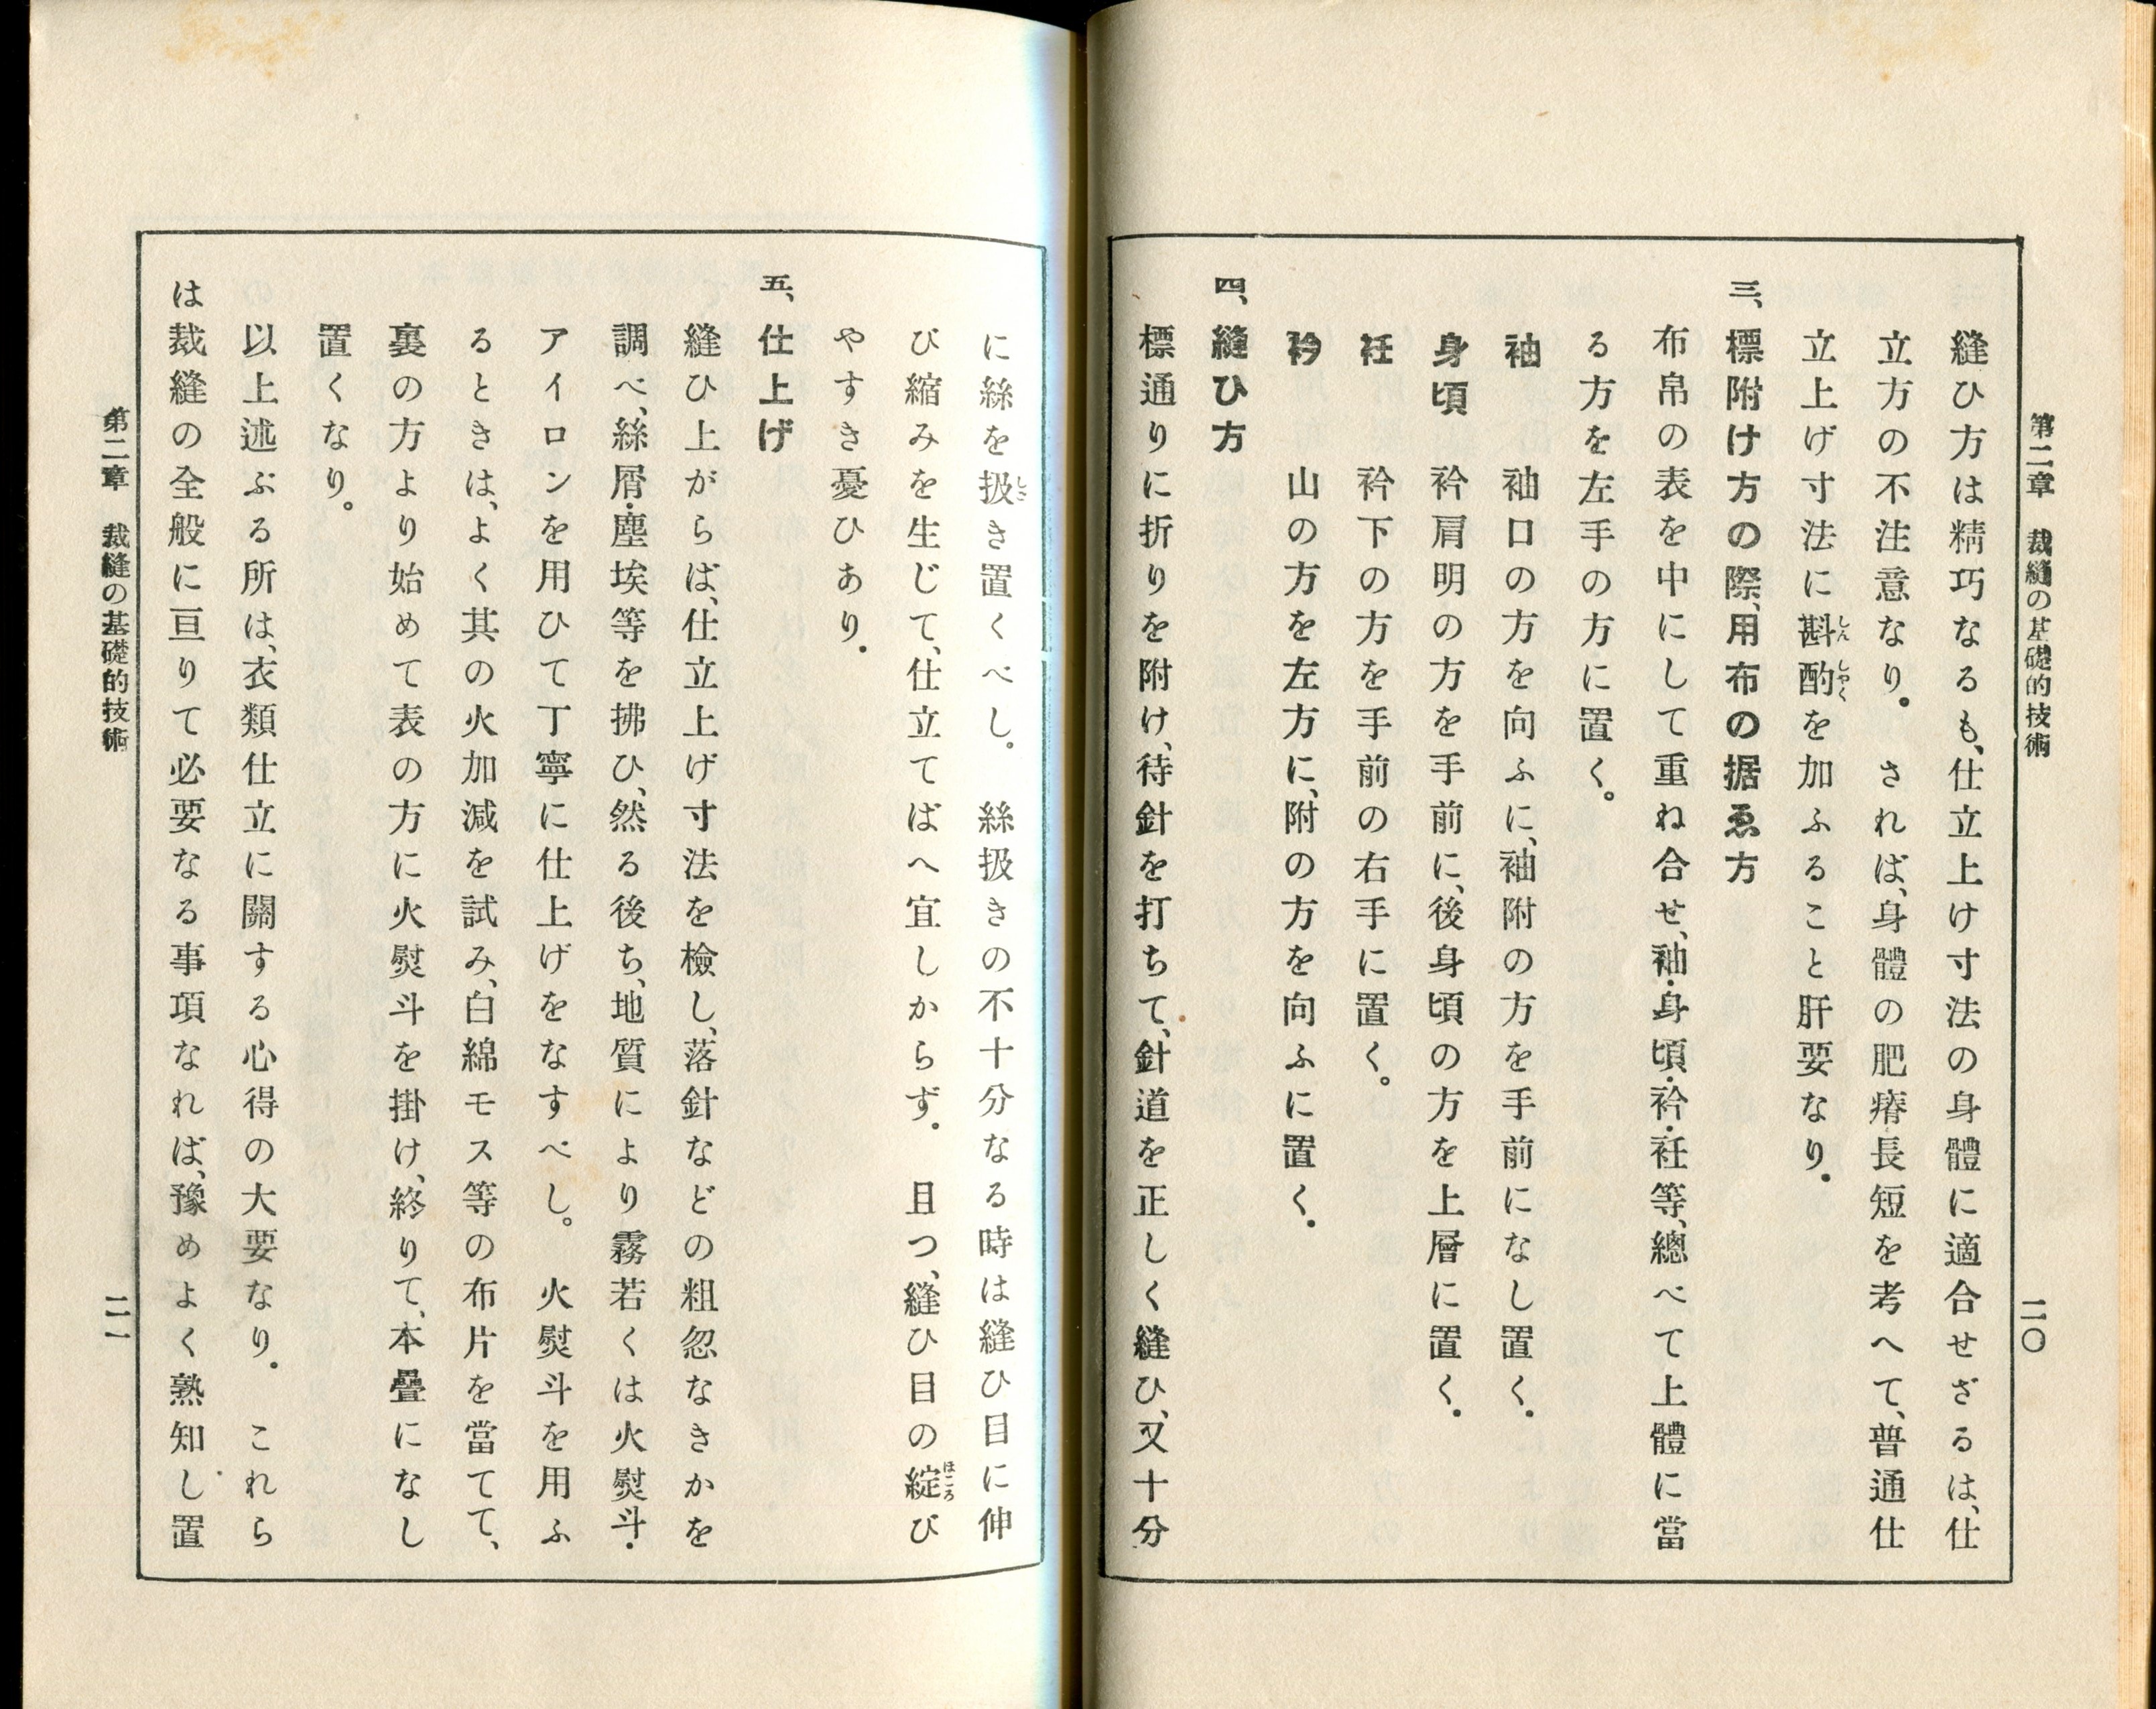 第二章　裁縫の基礎的技術　二〇
縫ひ方は精巧なるも、仕立上け寸法の身體に適合せざるは、仕
立方の不注意なり。されば、身體の肥瘠長短を考へて、普通仕
立上げ寸法に斟酌を加ふること肝要なり。
しんしやく
三、標附け方の際、用布の据ゑ方
布帛の表を中にして重ね合せ、袖・身頃・衿・衽等、總べて上體に當
る方を左手の方に置く。
袖　袖口の方を向ふに、袖附の方を手前になし置く。
身頃　衿肩明の方を手前に、後身頃の方を上層に置く。
衽　衿下の方を手前の右手に置く。
衿　山の方を左方に、附の方を向ふに置く。
四、縫ひ方
標通りに折りを附け、待針を打ちて、針道を正しく縫ひ、又十分
に絲を扱き置くべし。絲扱きの不十分なる時は縫ひ目に伸
しご
び縮みを生じて、仕立てばへ宜しからず。且つ、縫ひ目の綻び
ほころ
やすき憂ひあり。
五、仕上げ
縫ひ上がらば、仕立上げ寸法を檢し、落針などの粗忽なきかを
調べ、絲屑・塵埃等を拂ひ、然る後ち、地質により霧若くは火熨斗・
アイロンを用ひて丁寧に仕上げをなすべし。火熨斗を用ふ
るときは、よく其の火加減を試み、白綿モス等の布片を當てて、
裏の方より始めて表の方に火熨斗を掛け、終りて、本疊になし
置くなり。
以上述ぶる所は、衣類仕立に關する心得の大要なり。これら
は裁縫の全般に亘りて必要なる事項なれば、豫めよく熟知し置
第二章　裁縫の基礎的技術　二一